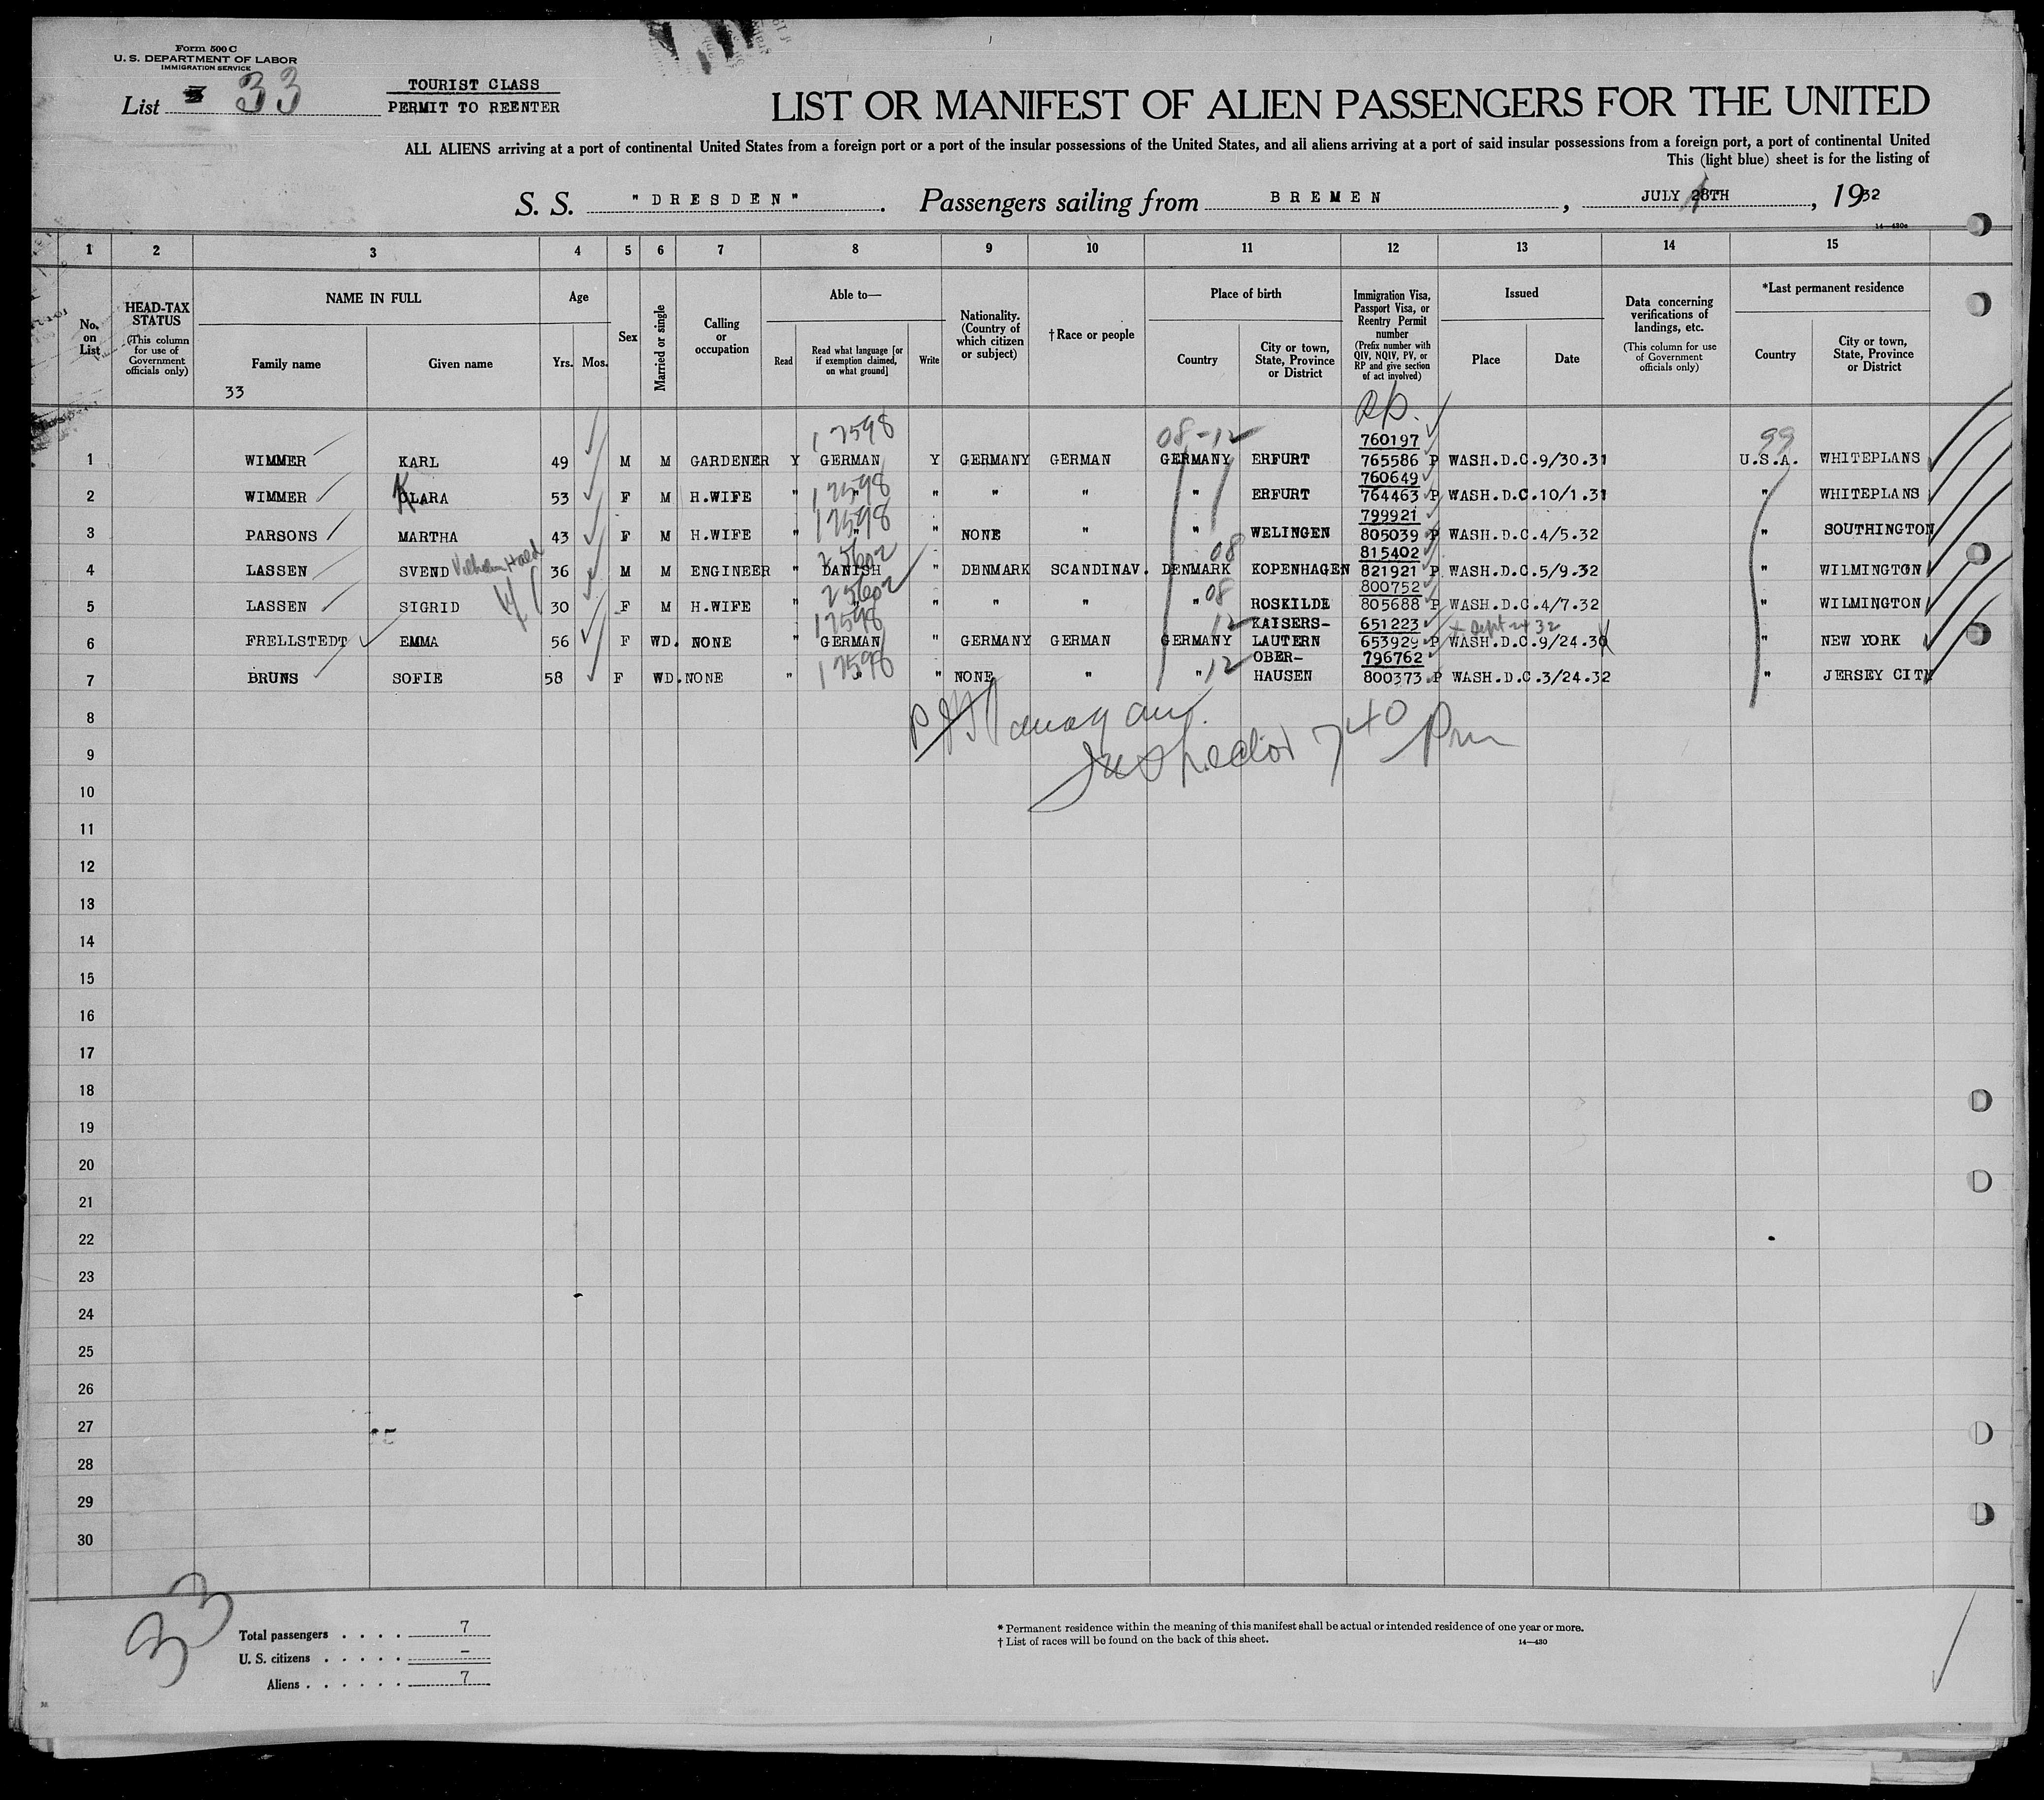 Form 500 C
U. S. DEPARTMENT OF LABOR
IMMIGRATION SERVICE
List 33
TOURIST CLASS
PERMIT TO REENTER
LIST OR MANIFEST OF ALIEN PASSENGERS FOR THE UNITED
ALL ALIENS arriving at a port of continental United States from a foreign port or a port of the insular possessions of the United States, and all aliens arriving at a port of said insular possessions from a foreign port, a port of continental United
This (light blue) sheet is for the listing of
S. S. "DRESDEN". Passengers sailing from BREMEN, JULY 28TH, 1932
14—430a
1 2 3 4 5 6 7 8 9 10 11 12 13 14 15
No. on List
HEAD-TAX STATUS (This column for use of Government officials only)
NAME IN FULL
Family name
Given name
33
Age
Yrs. Mos.
Sex
Married or single
Calling or occupation
Able to—
Read
Read what language [or if exemption claimed, on what ground]
Write
Nationality. (Country of which citizen or subject)
†Race or people
Place of birth
Country
City or town, State, Province or District
Immigration Visa, Passport Visa, or Reentry Permit number (Prefix number with QIV, NQIV, PV, or RP and give section of act involved)
Issued
Place
Date
Data concerning verifications of landings, etc. (This column for use of Government officials only)
*Last permanent residence
Country
City or town, State, Province or District
RP.
17598 08-12 760197 99
1 WIMMER KARL 49 M M GARDENER Y GERMAN Y GERMANY GERMAN GERMANY ERFURT 765586 P WASH.D.C.9/30.31 U.S.A. WHITEPLANS
17598 760649
2 WIMMER KLARA 53 F M H.WIFE " " " " " " ERFURT 764463 P WASH.D.C.10/1.31 " WHITEPLANS
17598 799921
3 PARSONS MARTHA 43 F M H.WIFE " " " NONE " " WELINGEN 805039 P WASH.D.C.4/5.32 " SOUTHINGTON
25602 08 815402
4 LASSEN SVEND Vilhelm Hald 36 M M ENGINEER " DANISH " DENMARK SCANDINAV. DENMARK KOPENHAGEN 821921 P WASH.D.C.5/9.32 " WILMINGTON
25602 08 800752
5 LASSEN SIGRID 30 F M H.WIFE " " " " " " ROSKILDE 805688 P WASH.D.C.4/7.32 " WILMINGTON
17598 12 KAISERS- 651223 Sept 24 32
6 FRELLSTEDT EMMA 56 F WD. NONE " GERMAN " GERMANY GERMAN GERMANY LAUTERN 653929 P WASH.D.C.9/24.30 " NEW YORK
17598 12 OBER- 796762
7 BRUNS SOFIE 58 F WD. NONE " " " NONE " " HAUSEN 800373 P WASH.D.C.3/24.32 " JERSEY CITY
8
Inspector 740 Pm
9
10
11
12
13
14
15
16
17
18
19
20
21
22
23
24
25
26
27
28
29
30
33
Total passengers . . . . 7
U. S. citizens . . . . . –
Aliens . . . . . . 7
* Permanent residence within the meaning of this manifest shall be actual or intended residence of one year or more.
† List of races will be found on the back of this sheet.
14—430